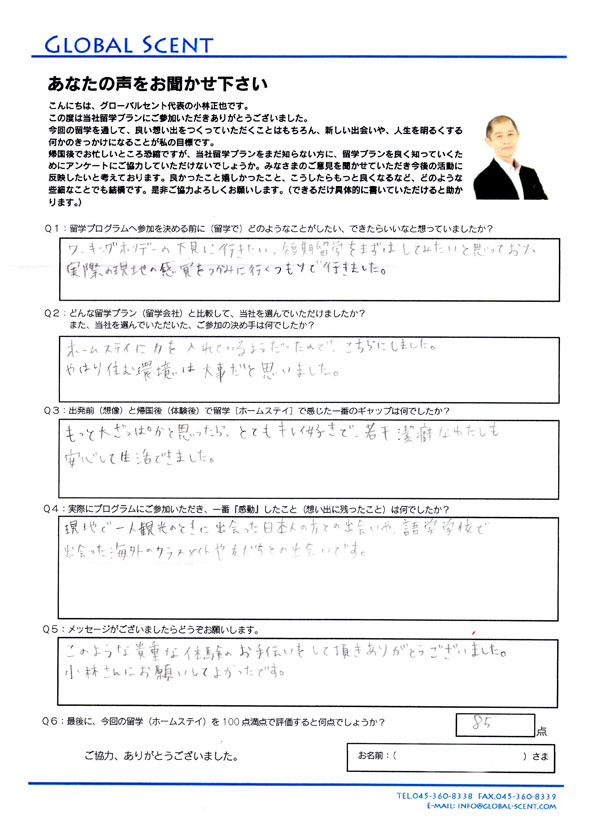 GLOBAL SCENT
あなたの声をお聞かせ下さい
こんにちは、グローバルセント代表の小林正也です。
この度は当社留学プランにご参加いただきありがとうございました。
今回の留学を通して、良い想い出をつくっていただくことはもちろん、新しい出会いや、人生を明るくする
何かのきっかけになることが私の目標です。
帰国後でお忙しいところ恐縮ですが、当社留学プランをまだ知らない方に、留学プランを良く知っていくた
めにアンケートにご協力していただけないでしょうか。みなさまのご意見を聞かせていただき今後の活動に
反映したいと考えております。良かったこと嬉しかったこと、こうしたらもっと良くなるなど、どのような
些細なことでも結構です。是非ご協力よろしくお願いします。(できるだけ具体的に書いていただけると助か
ります。)
Q1:留学プログラムへ参加を決める前に(留学で)どのようなことがしたい、できたらいいなと想っていましたか?
ワーキングホリデーの下見に行きたい、短期留学をまずはしてみたいと思っており、
実際の現地の感覚をつかみに行くつもりで行きました。
Q2:どんな留学プラン(留学会社)と比較して、当社を選んでいただけましたか?
また、当社を選んでいただいた、ご参加の決め手は何でしたか?
ホームステイに力を入れているようだったので、こちらにしました。
やはり住む環境は大事だと思いました。
Q3:出発前(想像)と帰国後(体験後)で留学[ホームステイ]で感じた一番のギャップは何でしたか?
もっと大ざっぱかと思ったら、とてもキレイ好きで、若干潔癖なわたしも
安心して生活できました。
Q4:実際にプログラムにご参加いただき、一番『感動』したこと(想い出に残ったこと)は何でしたか?
現地で一人観光のときに出会った日本人の方との出会いや、語学学校で
出会った海外のクラスメイトや友だちとの出会いです。
Q5:メッセージがございましたらどうぞお願いします。
このような貴重な体験のお手伝いをして頂きありがとうございました。
小林さんにお願いしてよかったです。
Q6:最後に、今回の留学(ホームステイ)を100点満点で評価すると何点でしょうか?
85
点
ご協力、ありがとうございました。
お名前:( )さま
TEL.045-360-8338 FAX.045-360-8339
E-MAIL: INFO@GLOBAL-SCENT.COM